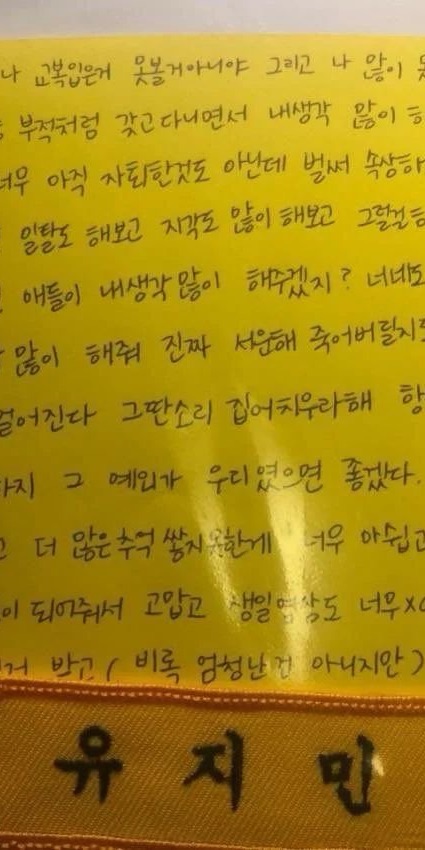 나 교복입은거 못볼거아니야 그리고 나 많이
부적처럼 갖고다니면서 내생각 많이
너무 아직 자퇴한것도 아닌데 벌써 속상하
일탈도 해보고 지각도 많이해보고 그럴걸
애들이 내생각많이 해주겠지? 너네도
많이 해줘 진짜 서운해 죽어버릴지도
멀어진다 그딴소리 집어치우라해 항
그 예외가 우리였으면 좋겠다.
더 많은추억 쌓지못한게 너무 아쉽고
이 되어줘서 고맙고 생일영상도 너무xo
박고 (비록 엄청난건 아니지만)
유지민